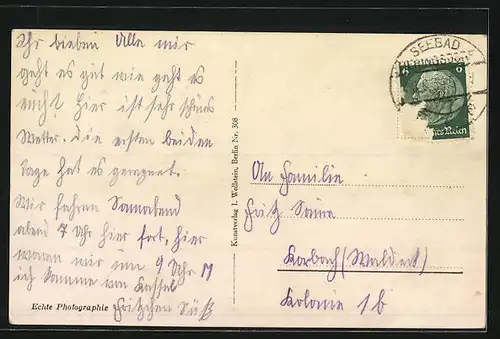 Ihr lieben Alle mir
geht es gut wie geht es
euch? Hier ist sehr schönes
Wetter. die ersten beiden
Tage hat es geregnet.
Wir fahren Sonnabend
abend 7 Uhr hier fort, hier
waren wir um 9 Uhr
ich komme von Kassel
Fritzchen Süß
Echte Photographie
Kunstverlag J. Wollstein, Berlin Nr. 308
SEEBAD
HERINGSDORF
6 6
Deutsches Reich
An Familie
Fritz
Korbach (Waldeck)
Kolonie 1b